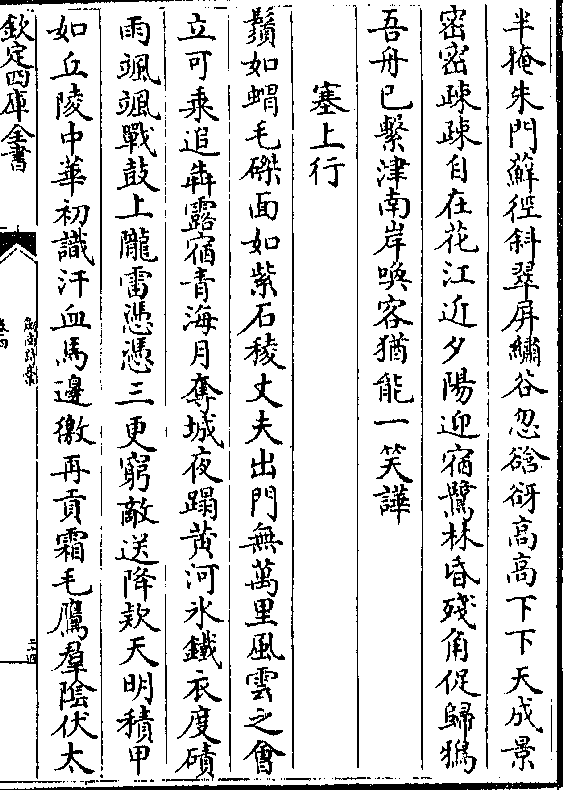 半掩朱門蘚徑斜翠屏繡谷忽谽谺高高下下天成景
密密疎疎自在花江近夕陽迎宿鷺林昏殘角促歸鴉
吾舟已繫津南岸喚客猶能一笑譁
塞上行
鬚如蝟毛磔面如紫石稜丈夫出門無萬里風雲之會
立可乘追奔露宿青海月奪城夜蹋黃河氷鐵衣度磧
雨颯颯戰鼓上隴雷憑憑三更窮敵送降欵天明積甲
如丘陵中華初識汗血馬邊徼再貢霜毛鷹羣陰伏太
欽定四庫全書
劍南詩槀